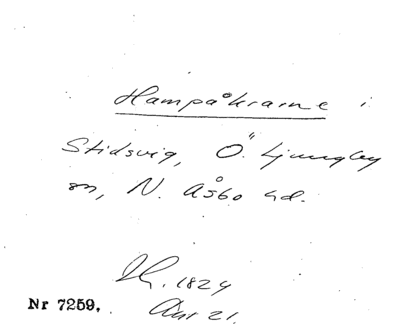 Hampåkrarne i
Stidsvig, Ö. Ljungby
sn, N. Åsbo hd.
1824
21.
Nr 7259.